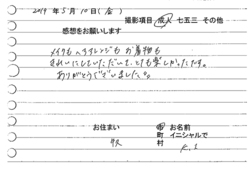 2019年5月10日(金)
撮影項目 成人 七五三 その他
感想をお願いします
メイクもヘアアレンジもお着物も
きれいにしていただいて、とても楽しかったです。
ありがとうございました。
お住まい
お名前
町 イニシャルで
村
K.S